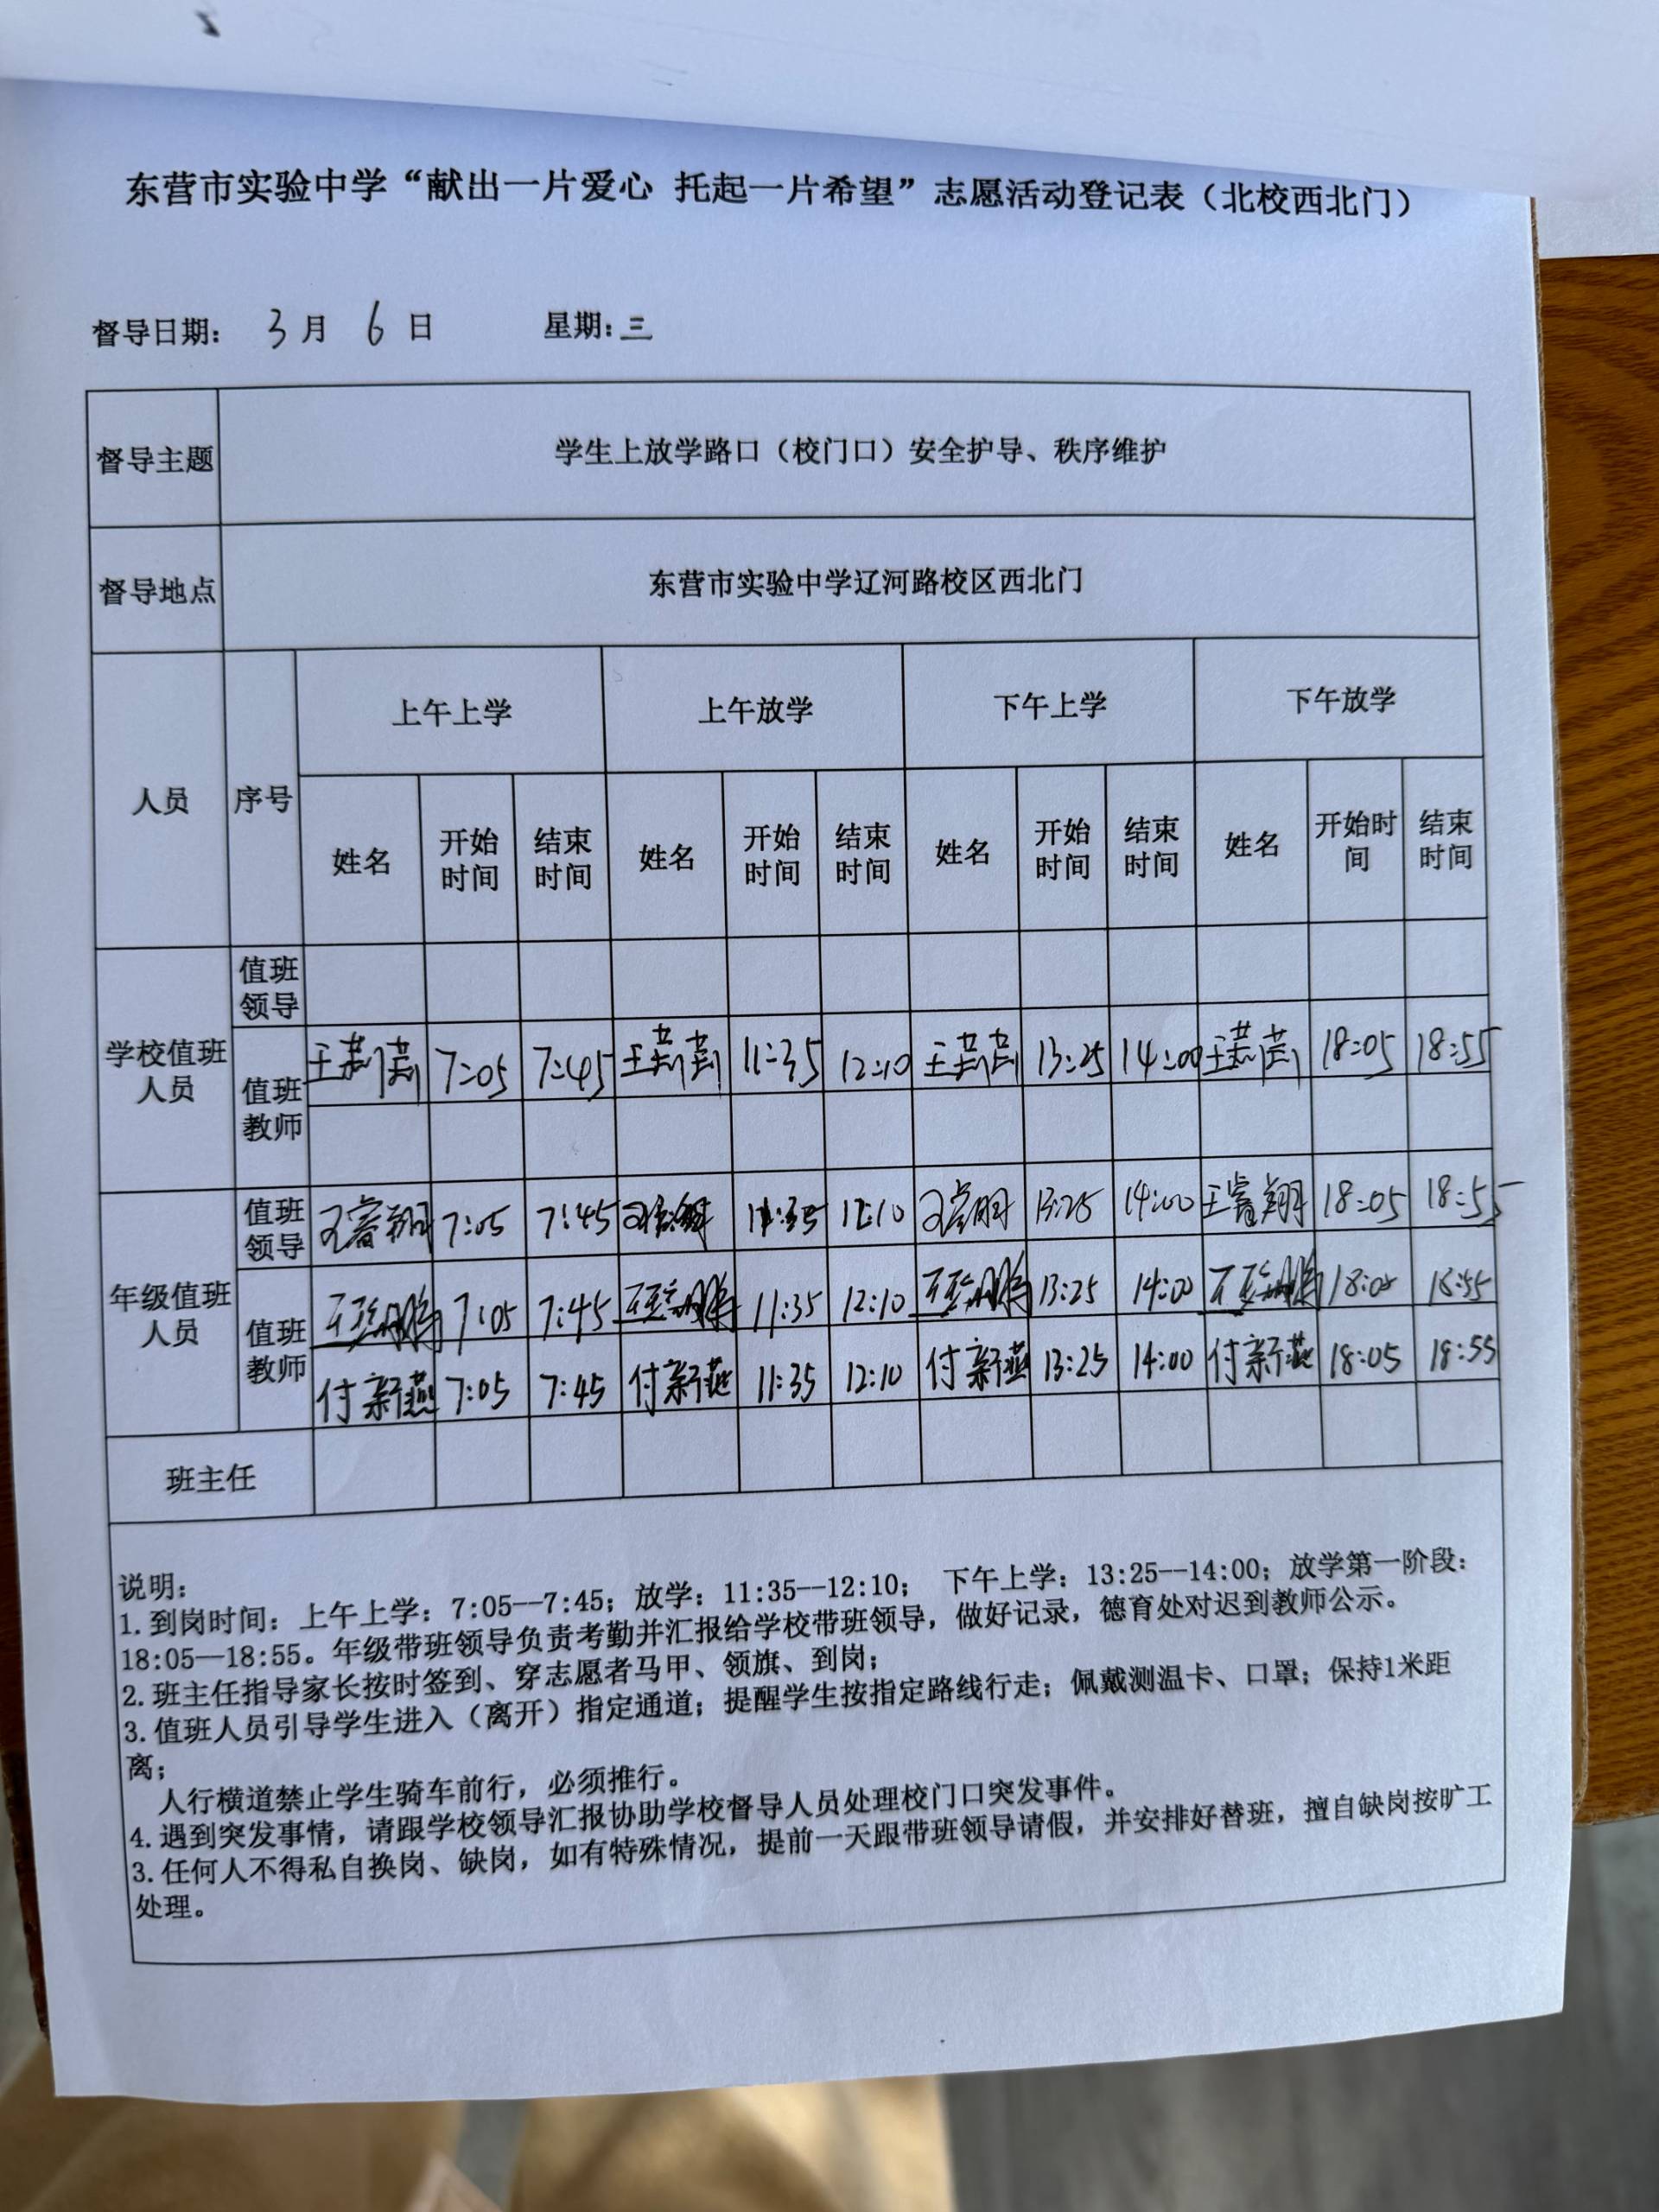 东营市实验中学“献出一片爱心 托起一片希望”志愿活动登记表（北校西北门）
督导日期： 3 月 6 日 星期：三
督导主题 学生上放学路口（校门口）安全护导、秩序维护
督导地点 东营市实验中学辽河路校区西北门
人员 序号 上午上学 上午放学 下午上学 下午放学
姓名 开始时间 结束时间 姓名 开始时间 结束时间 姓名 开始时间 结束时间 姓名 开始时间 结束时间
学校值班人员 值班领导
值班教师 7:05 7:45 11:35 12:10 13:25 14:00 18:05 18:55
年级值班人员 值班领导 王睿翔 7:05 7:45 11:35 12:10 13:25 14:00 王睿翔 18:05 18:55
值班教师 7:05 7:45 11:35 12:10 13:25 14:00 18:05 18:55
付新燕 7:05 7:45 付新燕 11:35 12:10 付新燕 13:25 14:00 付新燕 18:05 18:55
班主任
说明：
1.到岗时间：上午上学：7:05—7:45；放学：11:35—12:10； 下午上学：13:25—14:00；放学第一阶段：
18:05—18:55。年级带班领导负责考勤并汇报给学校带班领导，做好记录，德育处对迟到教师公示。
2.班主任指导家长按时签到、穿志愿者马甲、领旗、到岗；
3.值班人员引导学生进入（离开）指定通道；提醒学生按指定路线行走；佩戴测温卡、口罩；保持1米距
离；
人行横道禁止学生骑车前行，必须推行。
4.遇到突发事情，请跟学校领导汇报协助学校督导人员处理校门口突发事件。
3.任何人不得私自换岗、缺岗，如有特殊情况，提前一天跟带班领导请假，并安排好替班，擅自缺岗按旷工
处理。